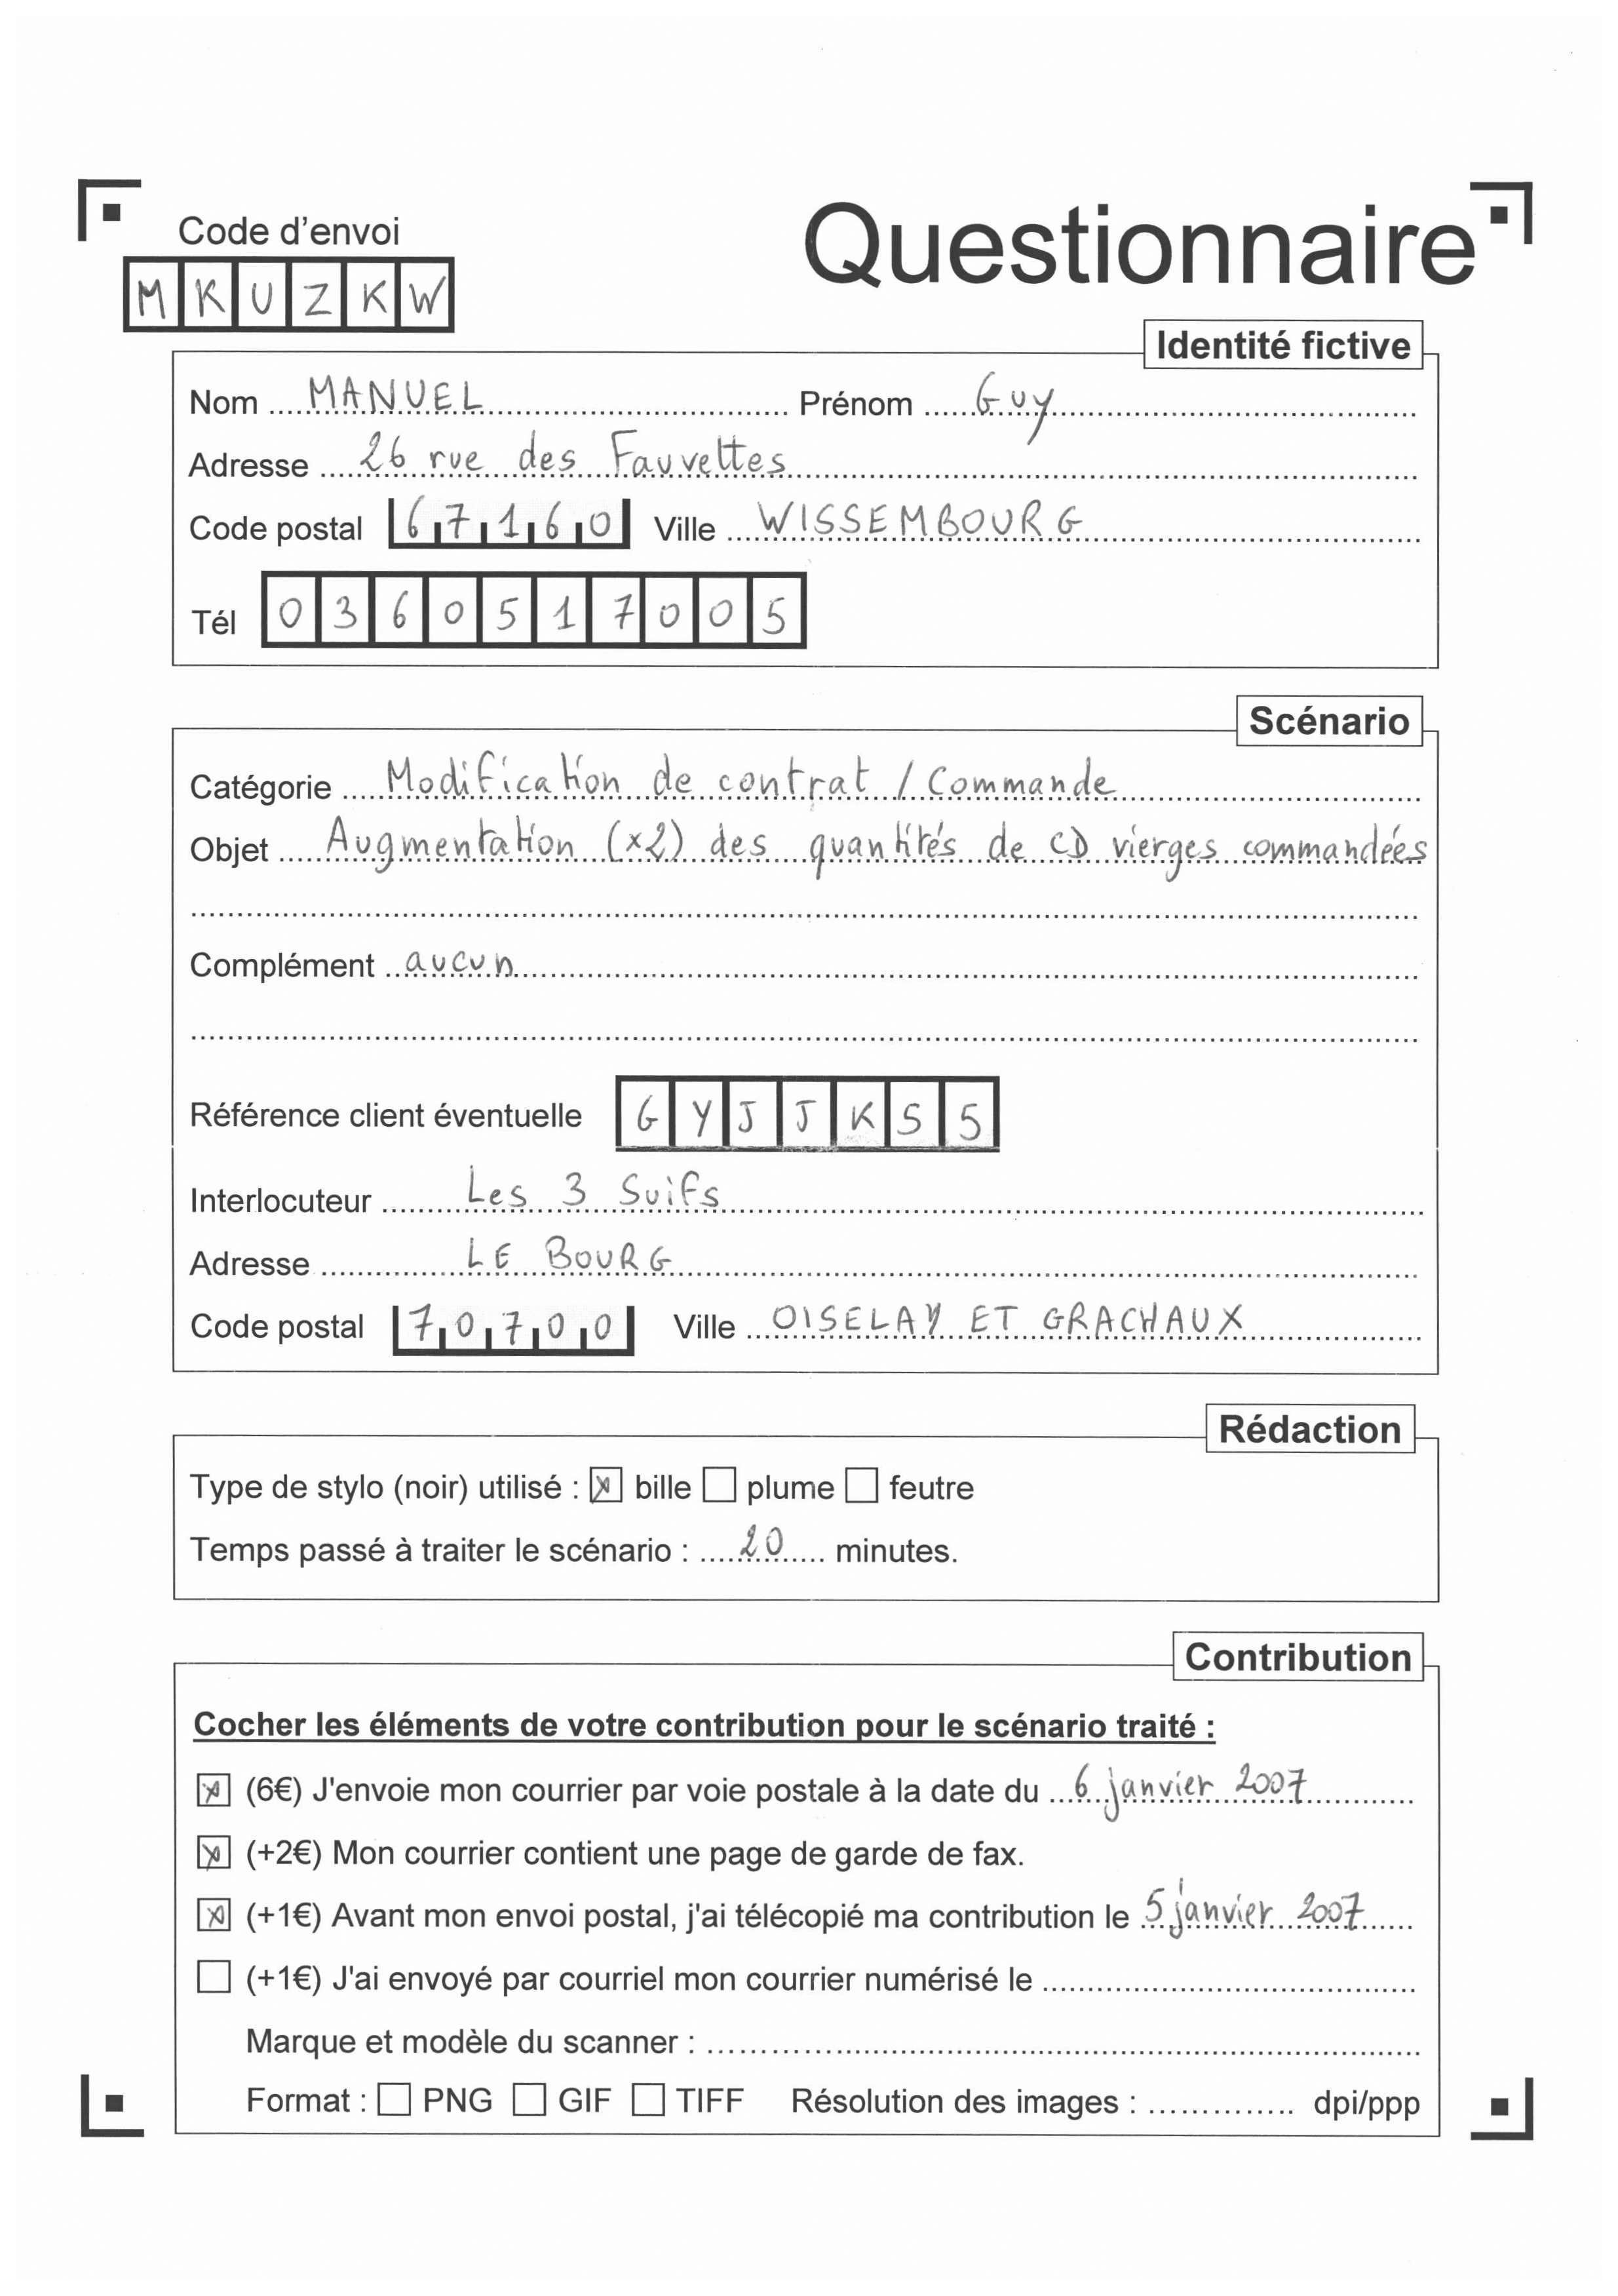 Code d'envoi
Questionnaire
MKUZKW
Identité fictive
Nom MANUEL Prénom Guy
Adresse 26 rue des Fauvettes
Code postal 67160 Ville WISSEMBOURG
Tél 0360517005
Scénario
Catégorie Modification de contrat / Commande
Objet Augmentation (x2) des quantités de CD vierges commandées
Complément aucun
Référence client éventuelle GYJJKS5
Interlocuteur Les 3 Suifs
Adresse LE BOURG
Code postal 70700 Ville OISELAY ET GRACHAUX
Rédaction
Type de stylo (noir) utilisé : ☒ bille ☐ plume ☐ feutre
Temps passé à traiter le scénario : 20 minutes.
Contribution
Cocher les éléments de votre contribution pour le scénario traité :
☒ (6€) J'envoie mon courrier par voie postale à la date du 6 janvier 2007
☒ (+2€) Mon courrier contient une page de garde de fax.
☒ (+1€) Avant mon envoi postal, j'ai télécopié ma contribution le 5 janvier 2007
☐ (+1€) J'ai envoyé par courriel mon courrier numérisé le
Marque et modèle du scanner :
Format : ☐ PNG ☐ GIF ☐ TIFF Résolution des images : dpi/ppp